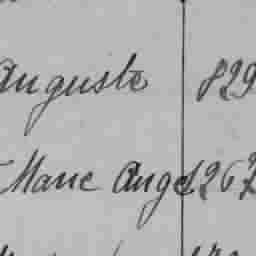 Auguste 829
Marie Ange 267